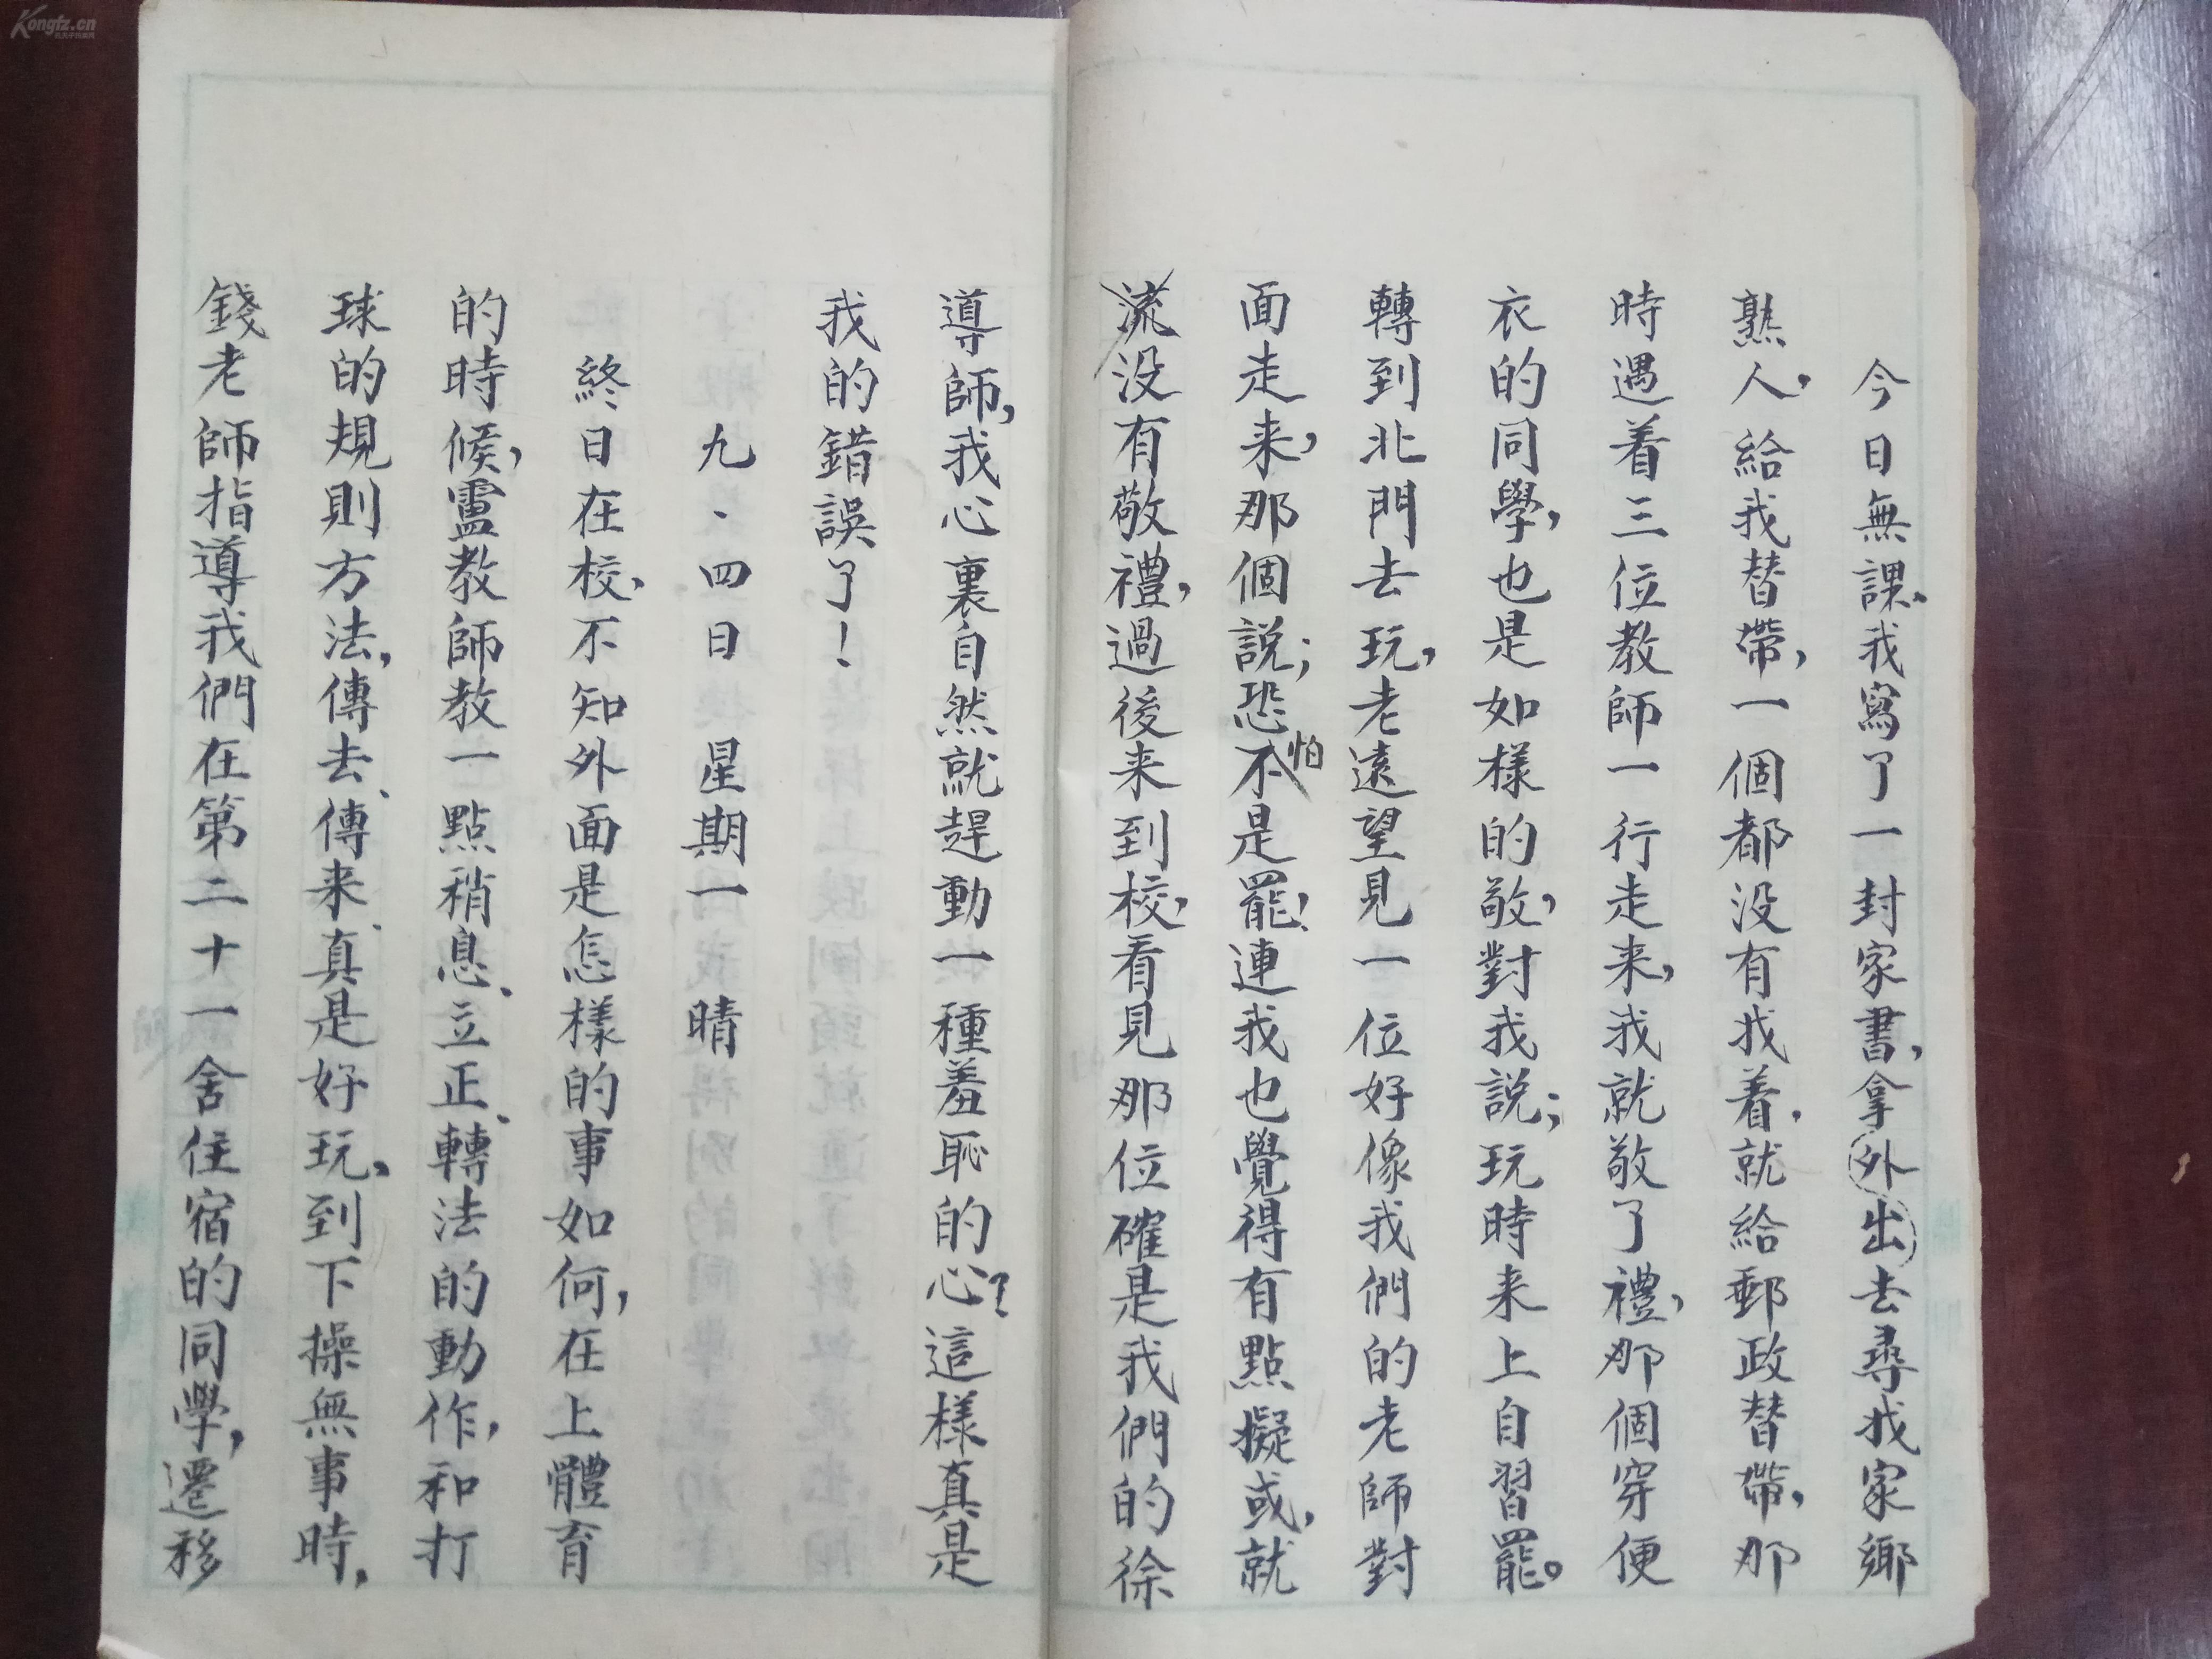 今日無課、我寫了一封家書，拿外出去尋我家鄉
熟人，給我替帶，一個都没有找着，就給郵政替帶，那
時遇着三位教師一行走来，我就敬了禮，那個穿便
衣的同學，也是如樣的敬，對我説；玩時来上自習罷。
轉到北門去玩，老遠望見一位好像我們的老師對
面走来，那個説；恐不怕是罷！連我也覺得有點擬或，就
流没有敬禮，過後来到校，看見那位確是我們的徐
導師，我心裏自然就趕動一種羞恥的心？這樣真是
我的錯誤了！
九、四日　星期一　晴
終日在校、不知外面是怎樣的事如何，在上體育
的時候，盧教師教一點稍息、立正、轉法的動作，和打
球的規則方法，傳去、傳来、真是好玩，到下操無事時，
錢老師指導我們在第二十一舍住宿的同學，遷移
Kongfz.cn